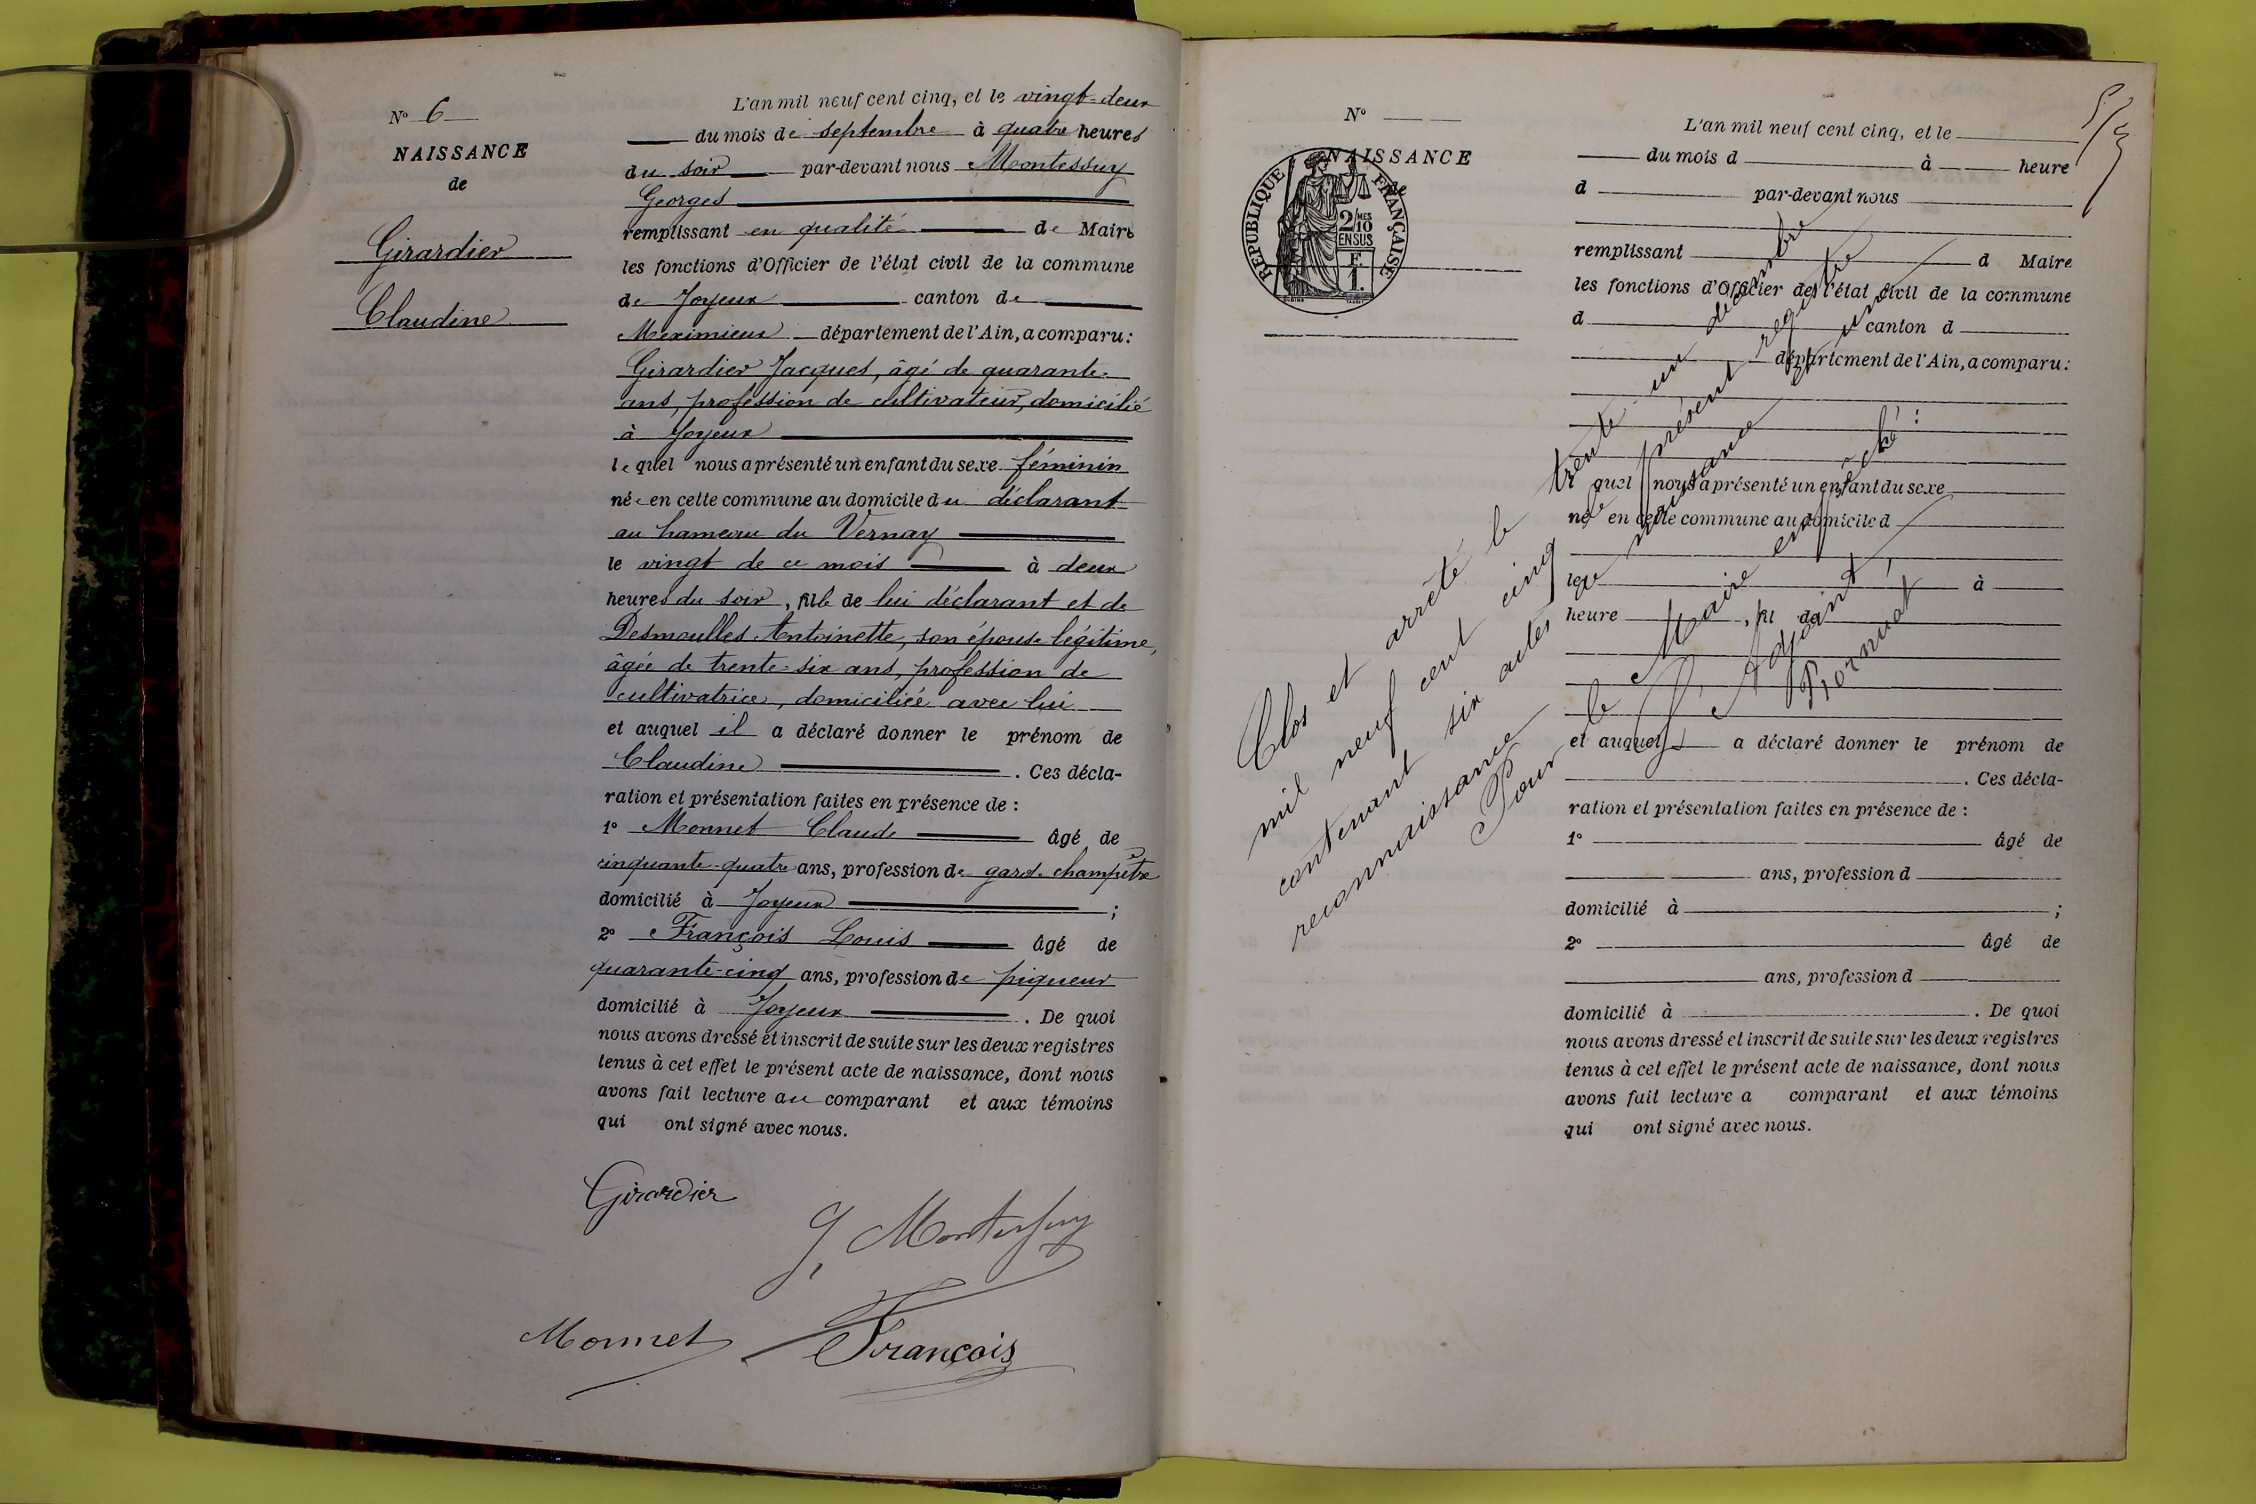 N° 6
NAISSANCE
de
Girardier
Claudine
L'an mil neuf cent cinq, et le vingt-deux
du mois de septembre à quatre heures
du soir par-devant nous Montessuy
Georges
remplissant en qualité de Maire
les fonctions d'Officier de l'état civil de la commune
de Joyeux canton de
Meximieux département de l'Ain, a comparu :
Girardier Jacques, âgé de quarante
ans, profession de cultivateur, domicilié
à Joyeux
lequel nous a présenté un enfant du sexe féminin
née en cette commune au domicile du déclarant
au hameau du Vernay
le vingt de ce mois à deux
heures du soir, fille de lui déclarant et de
Desmoulles Antoinette, son épouse légitime,
âgée de trente-six ans, profession de
cultivatrice, domiciliée avec lui
et auquel il a déclaré donner le prénom de
Claudine . Ces décla-
ration et présentation faites en présence de :
1° Monnet Claude âgé de
cinquante-quatre ans, profession de garde champêtre
domicilié à Joyeux ;
2° François Louis âgé de
quarante-cinq ans, profession de piqueur
domicilié à Joyeux . De quoi
nous avons dressé et inscrit de suite sur les deux registres
tenus à cet effet le présent acte de naissance, dont nous
avons fait lecture au comparant et aux témoins
qui ont signé avec nous.
Girardier
G Montessuy
Monnet
François
5/5
N°
NAISSANCE
de
RÉPUBLIQUE FRANÇAISE
2/10 MES
EN SUS
F.
1.
L'an mil neuf cent cinq, et le
du mois d à heure
d par-devant nous
remplissant d Maire
les fonctions d'Officier de l'état civil de la commune
d canton d
département de l'Ain, a comparu :
quel nous a présenté un enfant du sexe
né en cette commune au domicile d
le à
heure , fil de
et auquel a déclaré donner le prénom de
. Ces décla-
ration et présentation faites en présence de :
1° âgé de
ans, profession d
domicilié à ;
2° âgé de
ans, profession d
domicilié à . De quoi
nous avons dressé et inscrit de suite sur les deux registres
tenus à cet effet le présent acte de naissance, dont nous
avons fait lecture a comparant et aux témoins
qui ont signé avec nous.
Clos et arrêté le trente un décembre
mil neuf cent cinq le présent registre
contenant six actes de naissance et une
reconnaissance
Pour le Maire empêché :
L'Adjoint,
Pornuat